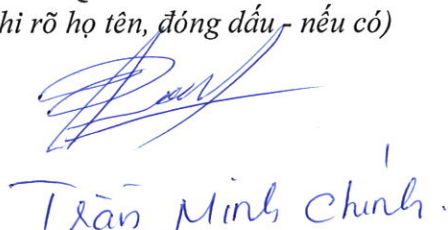 hi rõ họ tên, đóng dấu - nếu có)
Trần Minh Chính.